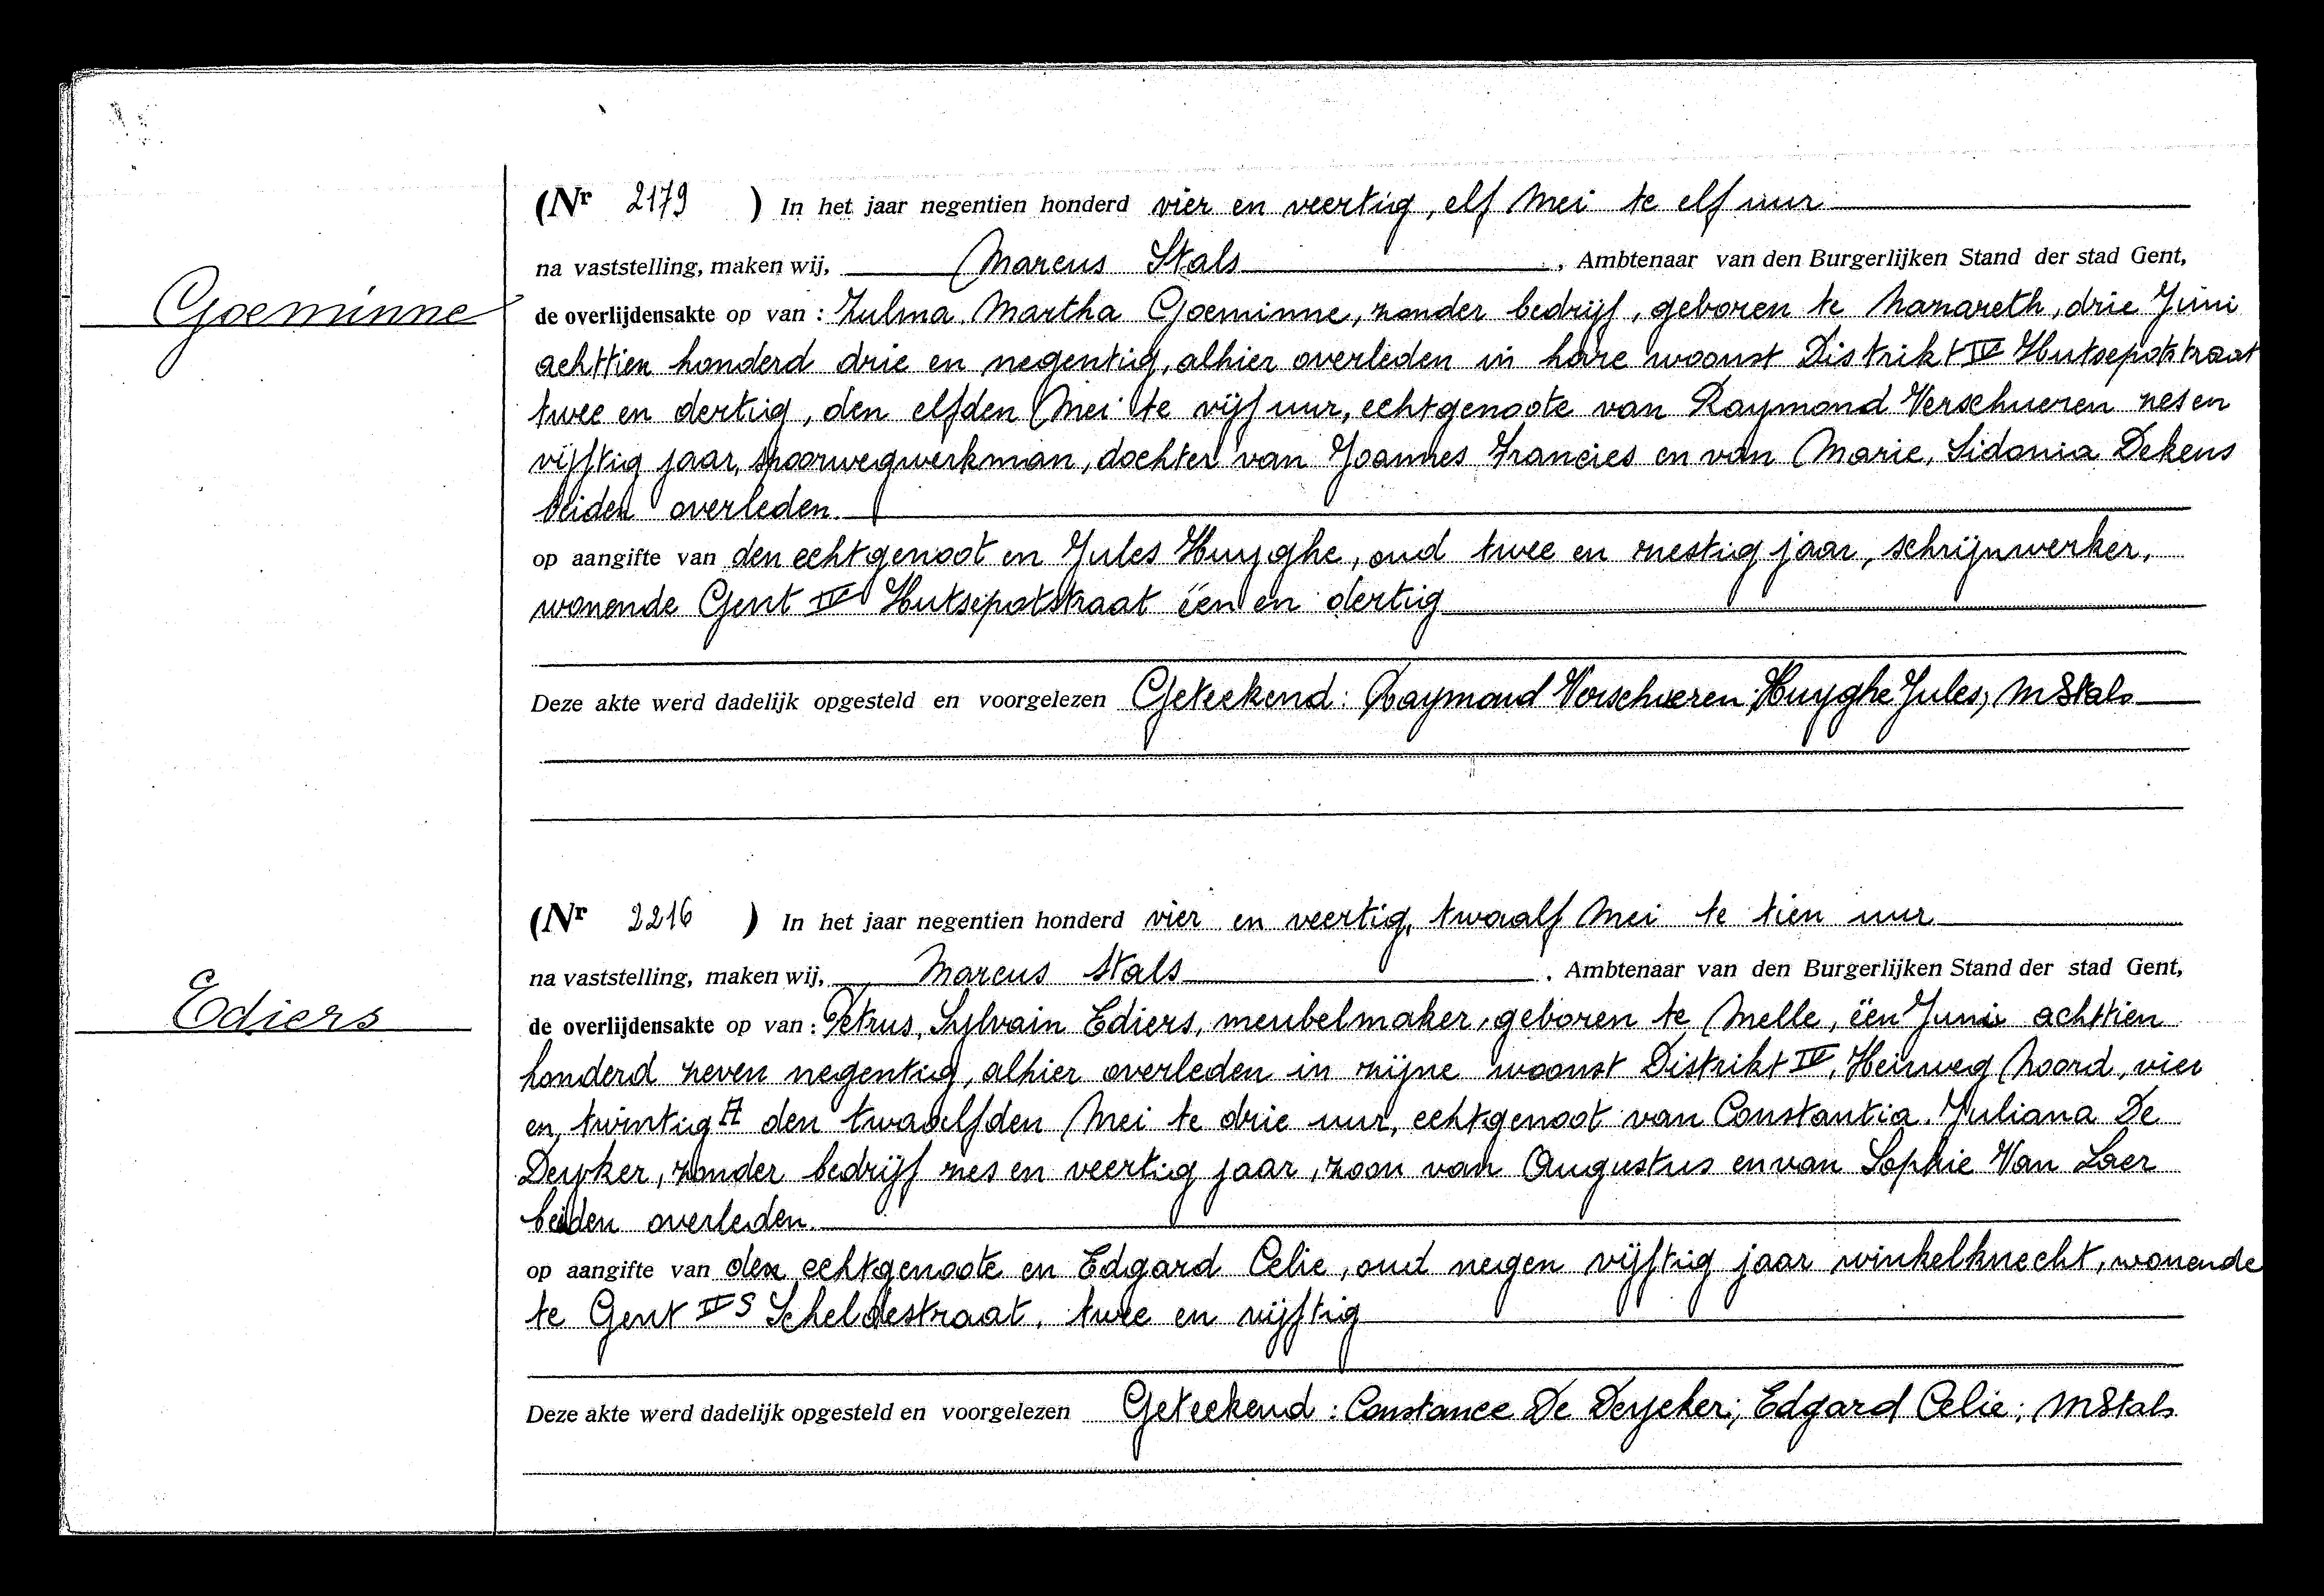 (Nr 2179 ) In het jaar negentien honderd vier en veertig, elf Mei te elf uur
na vaststelling, maken wij, Marcus Stals, Ambtenaar van den Burgerlijken Stand der stad Gent,
Goeminne
de overlijdensakte op van : Zulma, Martha Goeminne, zonder bedrijf, geboren te Nazareth, drie Juni
achttien honderd drie en negentig, alhier overleden in hare woonst Distrikt IV Hutsepotstraat
twee en dertig, den elfden Mei te vijf uur, echtgenoote van Raymond Verschueren zes en
vijftig jaar, spoorwegwerkman, dochter van Joannes Francies en van Marie, Sidonia Dekens
beiden overleden.
op aangifte van den echtgenoot en Jules Huyghe, oud twee en zestig jaar, schrijnwerker,
wonende Gent IV Hutsepotstraat één en dertig
Deze akte werd dadelijk opgesteld en voorgelezen Geteekend: Raymond Verschueren; Huyghe Jules; M Stals
(Nr 2216 ) In het jaar negentien honderd vier en veertig, twaalf Mei te tien uur
na vaststelling, maken wij, Marcus Stals, Ambtenaar van den Burgerlijken Stand der stad Gent,
Ediers
de overlijdensakte op van : Petrus, Sylvain Ediers, meubelmaker, geboren te Melle, één Juni achttien
honderd zeven negentig, alhier overleden in zijne woonst Distrikt IV, Heirweg Noord, vier
en twintig A den twaalfden Mei te drie uur, echtgenoot van Constantia, Juliana De
Deyker, zonder bedrijf zes en veertig jaar, zoon van Augustus en van Sophie Van Laer
beiden overleden.
op aangifte van den echtgenoote en Edgard Celie, oud negen vijftig jaar winkelknecht, wonende
te Gent II S Scheldestraat, twee en vijftig
Deze akte werd dadelijk opgesteld en voorgelezen Geteekend : Constance De Deycker; Edgard Celie; M Stals